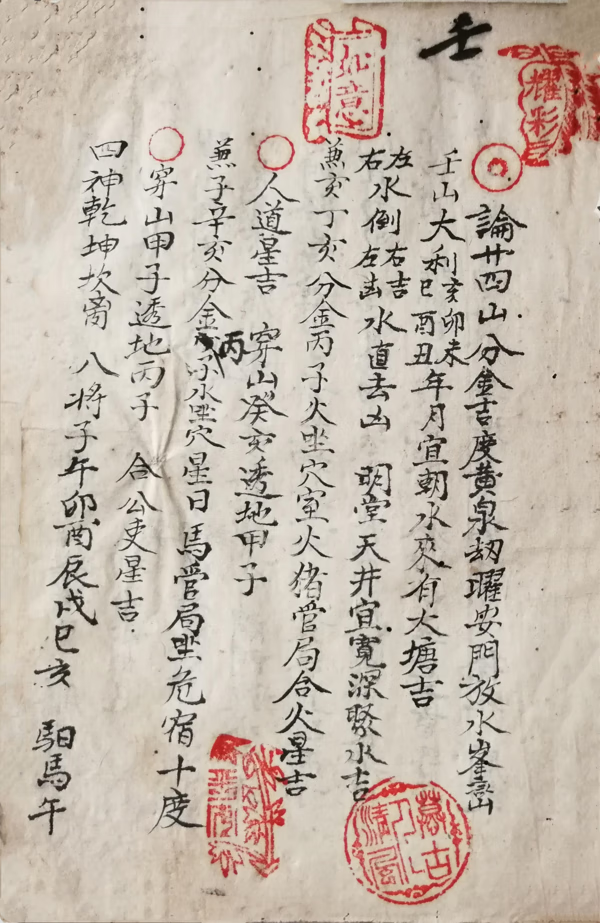 壬
論廿四山分金吉度黃泉刼曜安門放水峯巒
壬山大利亥卯未巳酉丑年月宜朝水來有大塘吉
左水倒右吉右水倒左凶水直去凶 明堂天井宜寬深聚水吉
兼亥丁亥分金丙子火坐穴室火猪管局合火星吉
人道星吉 穿山癸亥透地甲子
兼子辛亥分金丙子水坐穴星日馬管局坐危宿十度
穿山甲子透地丙子 合公吏星吉
四神乾坤坎离 八將子午卯酉辰戌巳亥 馹馬午
如意
耀彩